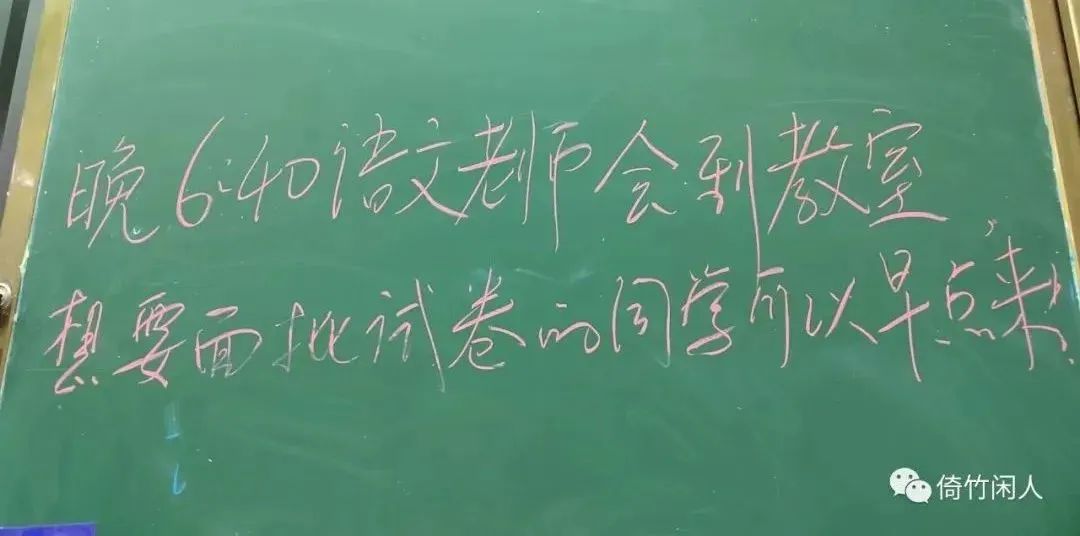 晚6:40语文老师会到教室,
想要面批试卷的同学可以早点来!
倚竹闲人